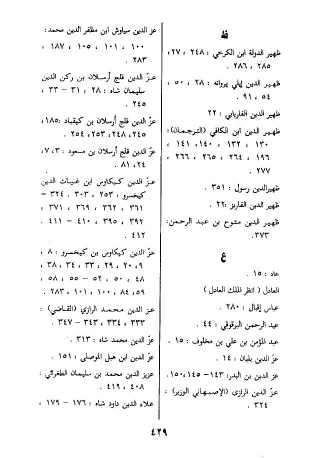 ظ
ظهير الدولة ابن الكرخي : ٢٤٨ ، ٢٧،
٢٨٥ ، ٢٨٦ .
ظهير الدين إيلي پروانه : ٢٨ ، ٥٠ ،
٥٤ ، ٩١ .
ظهير الدين الفاريابي : ٢٢
ظهير الدين ابن الكافي (الترجمان):
١٣٠ ، ١٣٢ ، ١٤٠ ، ١٤١ ،
١٩٦ ، ٢٦٤ ، ٢٦٥ ، ٢٦٦ ،
٢٧٧
ظهيرالدين رسول : ٣٥١ .
ظهير الدين الفاريز: ٢٢ .
ظهير الدين منتوج بن عبد الرحمن:
٣٧٣ .
ع
عاد : ١٥ .
العادل ( انظر الملك العادل )
عباس إقبال : ٢٨٠ .
عبد الرحمن البرقوقي : ٤٤ .
عبد المؤمن بن علي بن مخلوف : ١٥ .
عز الدين بلبان : ١٤ .
عز الدين بن البدر: ١٤٣–١٤٥، ١٥٠.
عز الدين الرازي (الإصبهاني الوزير) :
٣٢٤ .
عز الدين سياوش ابن مظفر الدين محمد:
١٠٠ ، ١٠١ ، ١٠٥ ، ١٨٧ ،
٢٨٣ .
عز الدين قلج أرسلان بن ركن الدين
سليمان شاه : ٢٨ ، ٣١ – ٣٣ ،
٢٤٥ .
عز الدين قلج أرسلان بن كيقباد: ١٨٥،
٢٤٥، ٢٤٨، ٢٥٣، ٢٥٤ .
عز الدين قلج أرسلان بن مسعود : ٣، ٧،
٢٤، ٨١ .
عز الدين كيكاوس ابن غياث الدين
كيخسرو : ٢٥٣ ، ٣٠٣ ،
٣٦١ ، ٣٦٢ ، ٣٦٩ ، ٣٧١ ،
٣٩٢ ، ٣٩٥ ، ٤١٠ – ٤١١ ،
٤١٢ .
عز الدين كيكاوس بن كيخسرو : ٨ ،
٩، ٢٠ ، ٢٩ ، ٣٣ ، ٣٤ ، ٣٨ ،
٤٨ ، ٥٠ ، ٥٢ – ٥٥ ، ٥٨ ،
٥٩، ٨٤ ، ١٠٠ ، ١٠١ ، ٢٨٣ .
عز الدين محمد الرازي (القاضي) :
٣٣٣ ، ٣٣٤ ، ٣٤٣ – ٣٤٧ .
عز الدين محمد شاه : ٣١٣ .
عز الدين ابن هبل الموصلي : ١٥١ .
عزيز الدين محمد بن سليمان الطغرائي :
٤٠٨ ، ٤١٩ .
علاء الدين داود شاه : ١٧٦ – ١٧٩ ،
٤٢٩